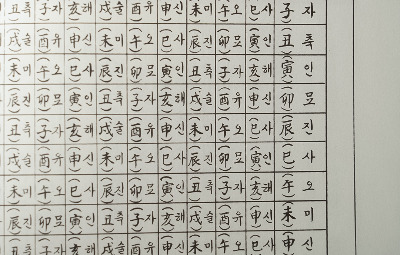 (丑)축 (子)자 (亥)해 (戌)술 (酉)유 (申)신 (未)미 (午)오 (巳)사 (子) 자
(戌)술 (酉)유 (申)신 (未)미 (午)오 (巳)사 (辰)진 (卯)묘 (寅)인 (丑) 축
(未)미 (午)오 (巳)사 (辰)진 (卯)묘 (寅)인 (丑)축 (子)자 (亥)해 (寅) 인
(辰)진 (卯)묘 (寅)인 (丑)축 (子)자 (亥)해 (戌)술 (酉)유 (申)신 (卯) 묘
(丑)축 (子)자 (亥)해 (戌)술 (酉)유 (申)신 (未)미 (午)오 (巳)사 (辰) 진
(戌)술 (酉)유 (申)신 (未)미 (午)오 (巳)사 (辰)진 (卯)묘 (寅)인 (巳) 사
(未)미 (午)오 (巳)사 (辰)진 (卯)묘 (寅)인 (丑)축 (子)자 (亥)해 (午) 오
(辰)진 (卯)묘 (寅)인 (丑)축 (子)자 (亥)해 (戌)술 (酉)유 (申)신 (未) 미
(丑)축 (子)자 (亥)해 (戌)술 (酉)유 (申)신 (未)미 (午)오 (巳)사 (申) 신